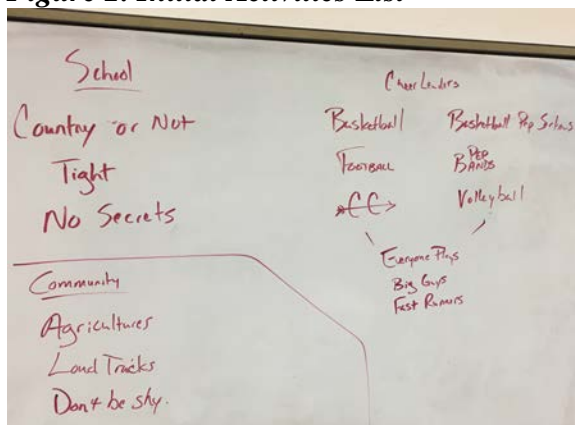 Initial Activities List
School
Country or Not
Tight
No Secrets
Community
Agricultures
Loud Trucks
Don't be shy.
Cheer Leaders
Basketball
FOOTBALL
CC
Basketball Pep
PEP
BANDS
Volleyball
Everyone Plays
Big Guys
Fast Runners